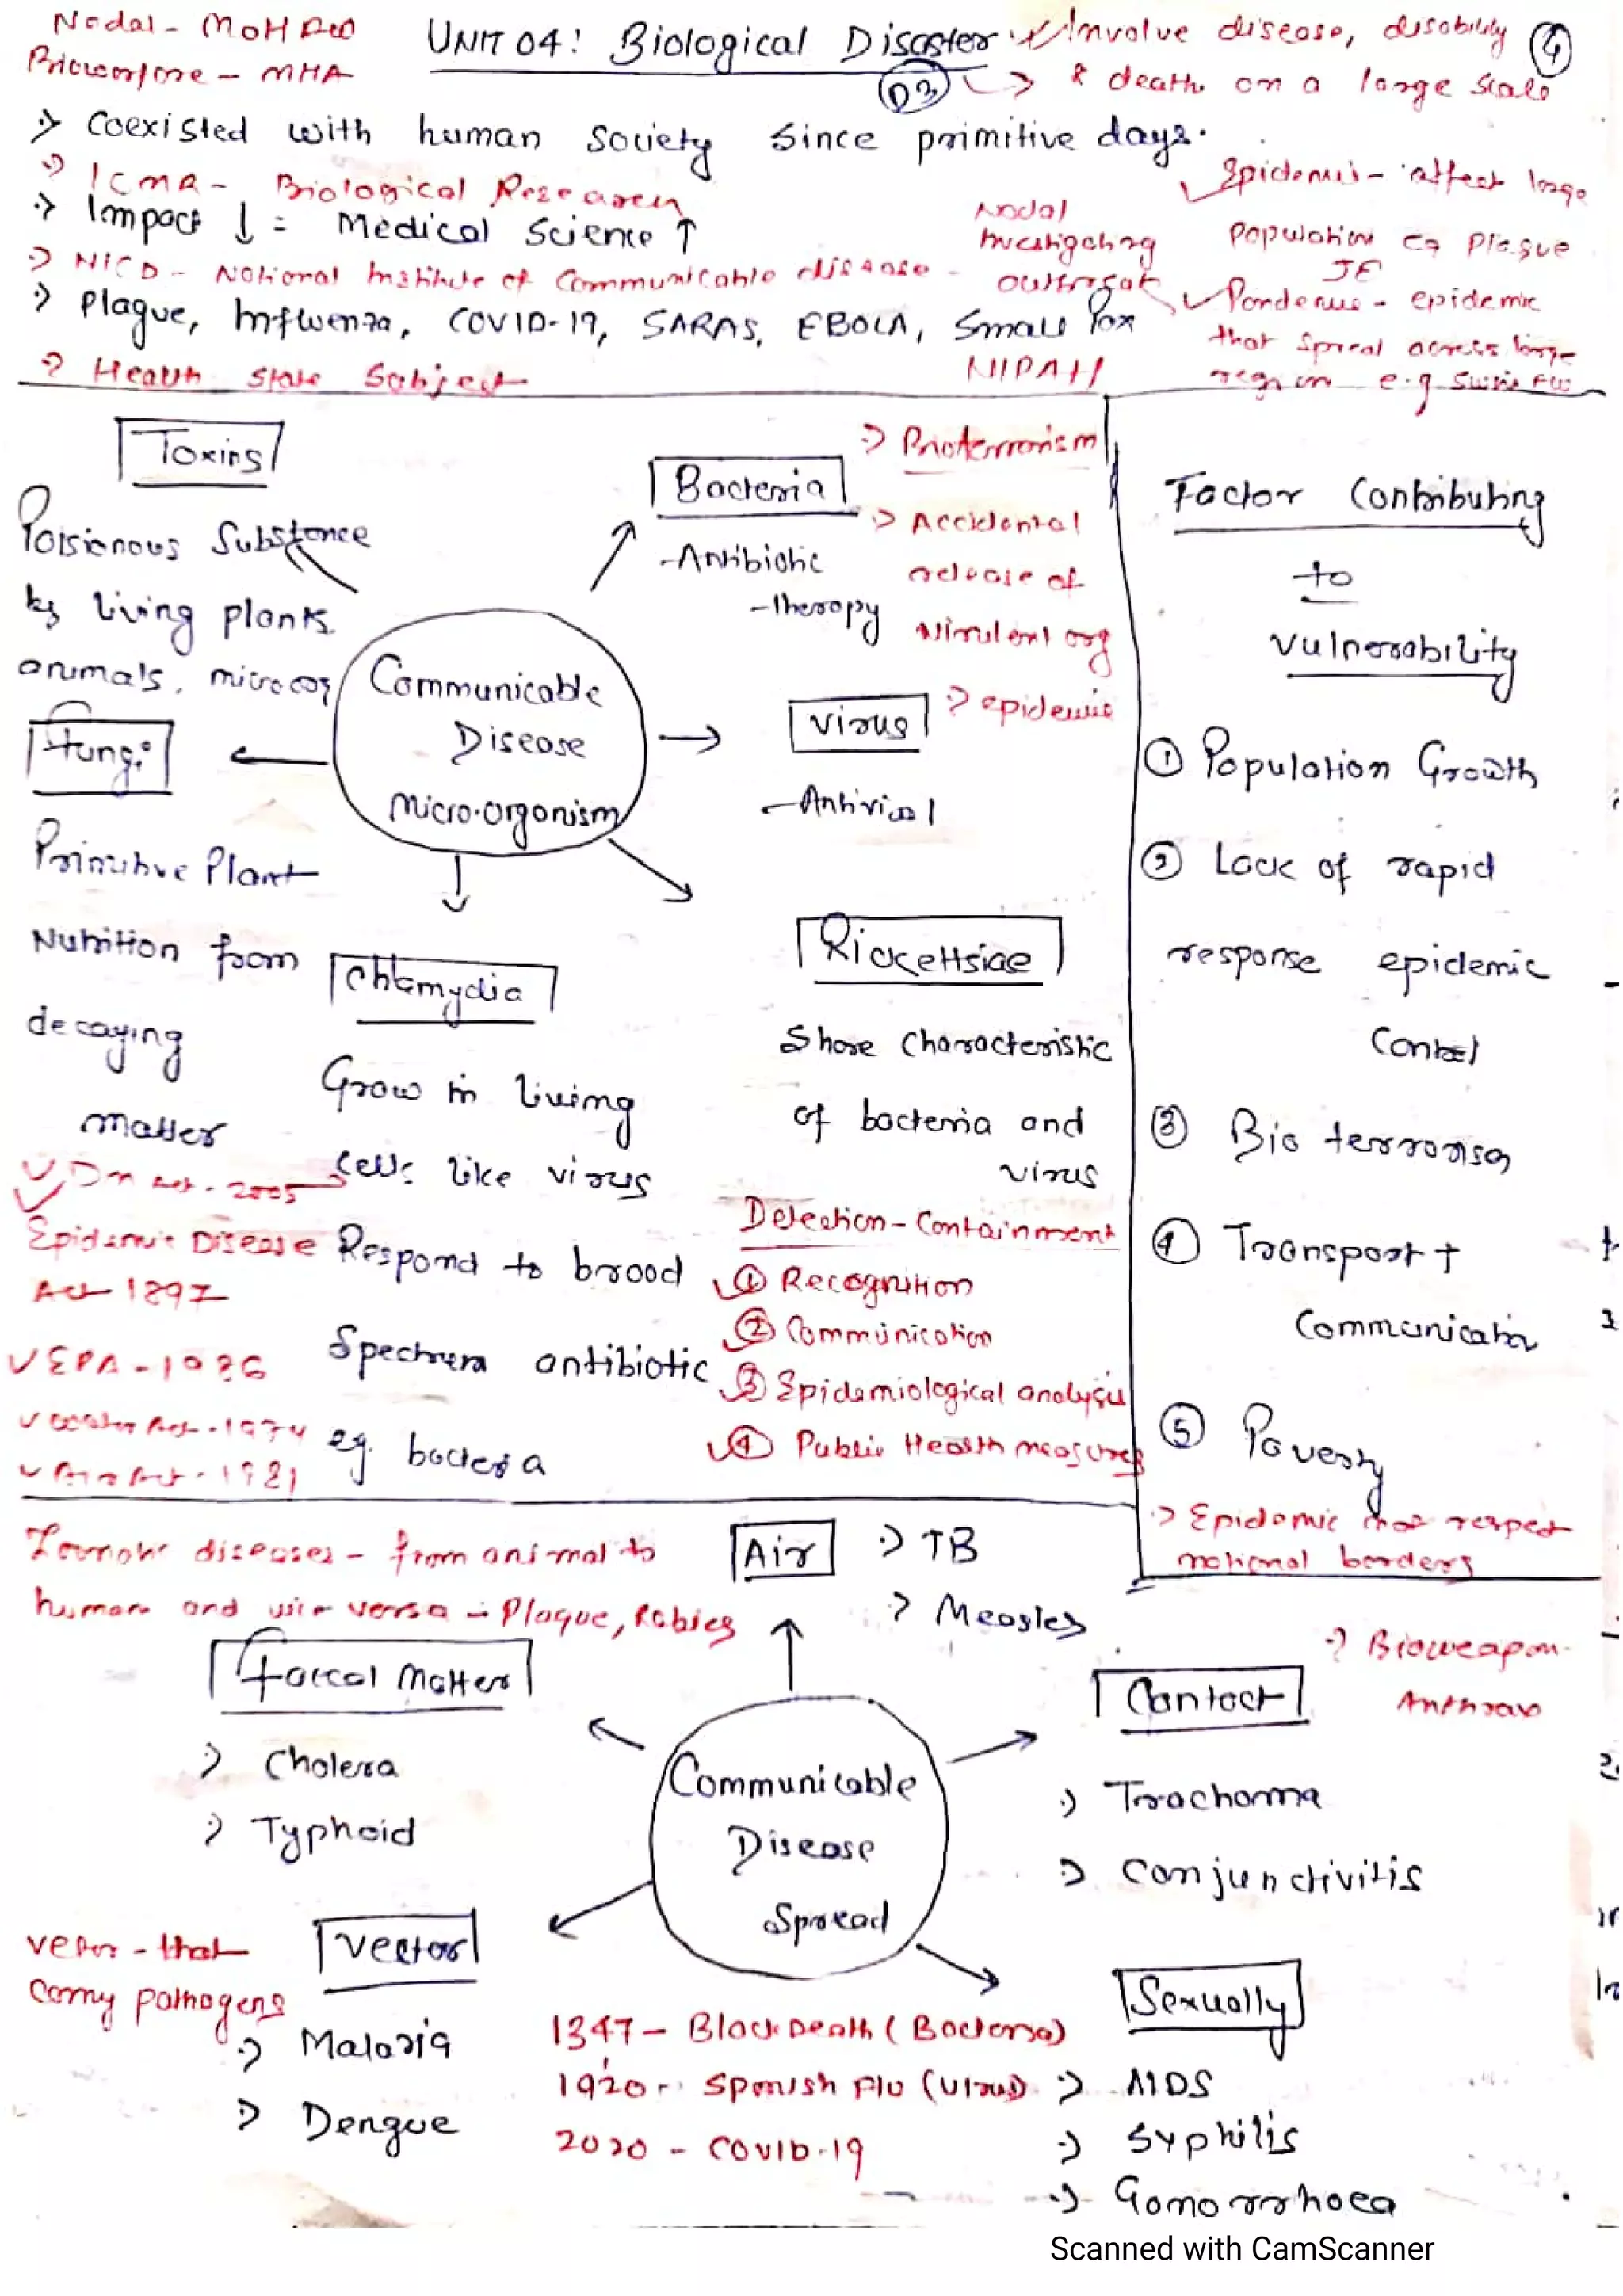 Nodal - MOH
UNIT 04: Biological Disaster
Involve disease, disability
4
- MHA
D3
& death on a large scale
Coexisted with human society since primitive days.
ICMR - Biological Research
Epidemic - affect large
Impact ↓ = Medical Science ↑
Nodal
Investigating
population eg plague
NICD - National Institute of Communicable disease -
JE
epidemic
Plague, Influenza, COVID-19, SARAS, EBOLA, Small Pox
that spread across large
Health State Subject
NIPAH
region e.g Swine Flu
Toxins
Poisionous Substance
by living plants.
animals,
Bacteria
-Antibiotic
-Therapy
Bioterrorism
Accidental
release of
virulent org
epidemic
Communicable
Disease
Micro-organism
Virus
-Antiviral
Fungi
Primitive Plant
Nutrition from
decaying
matter
Chlamydia
Grow in living
cells like virus
Respond to brood
Spectrum antibiotic
eg. bacteria
Rickettsiae
Share Characteristic
of bacteria and
virus
DM Act. 2005
Epidemic Disease
Act 1897
EPA - 1986
Water Act - 1974
Air Act - 1981
Detection - Containment
① Recognition
② Communication
③ Epidemiological analysis
④ Public Health measures
Factor Contributing
to
Vulnerability
① Population Growth
② Lack of rapid
response epidemic
Control
③ Bio
④ Transport +
Communication
⑤ Poverty
Epidemic respect
national borders
Zoonotic diseases - from animal to
human and vice versa - Plague, Rabies
Air
TB
Measles
Faecal Matter
Cholera
Typhoid
Bioweapon -
Anthrax
Contact
Trachoma
Conjunctivitis
Communicable
Disease
Spread
Vector
Malaria
Dengue
Vector - that
carry pathogens
Sexually
AIDS
Syphilis
Gonorrhoea
1347 - Black Death (Bacteria)
1920 - Spanish Flu (Virus)
2020 - COVID-19
Scanned with CamScanner